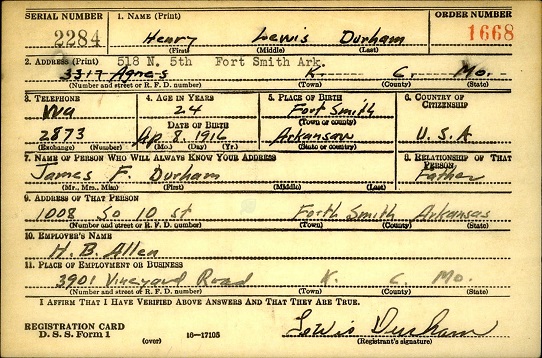 SERIAL NUMBER 1. NAME (Print) ORDER NUMBER
2284 Henry Lewis Durham 1668
(First) (Middle) (Last)
2. ADDRESS (Print) 518 N. 5th Fort Smith Ark.
3317 Agnes K. C. Mo.
(Number and street or R. F. D. number) (Town) (County) (State)
3. TELEPHONE 4. AGE IN YEARS 5. PLACE OF BIRTH 6. COUNTRY OF CITIZENSHIP
Wa 24 Fort Smith
DATE OF BIRTH (Town or county)
2873 Ap. 8. 1916 Arkansas U. S. A
(Exchange) (Number) (Mo.) (Day) (Yr.) (State or country)
7. NAME OF PERSON WHO WILL ALWAYS KNOW YOUR ADDRESS 8. RELATIONSHIP OF THAT PERSON
James F. Durham Father
(Mr., Mrs., Miss) (First) (Middle) (Last)
9. ADDRESS OF THAT PERSON
1008 So 10 st Forth Smith Arkansas
(Number and street or R. F. D. number) (Town) (County) (State)
10. EMPLOYER'S NAME
H. B. Allen
11. PLACE OF EMPLOYMENT OR BUSINESS
3901 Vineyard Road K. C. Mo.
(Number and street or R. F. D. number) (Town) (County) (State)
I AFFIRM THAT I HAVE VERIFIED ABOVE ANSWERS AND THAT THEY ARE TRUE.
REGISTRATION CARD
D. S. S. Form 1 (over) 16-17105 Lewis Durham
(Registrant's signature)